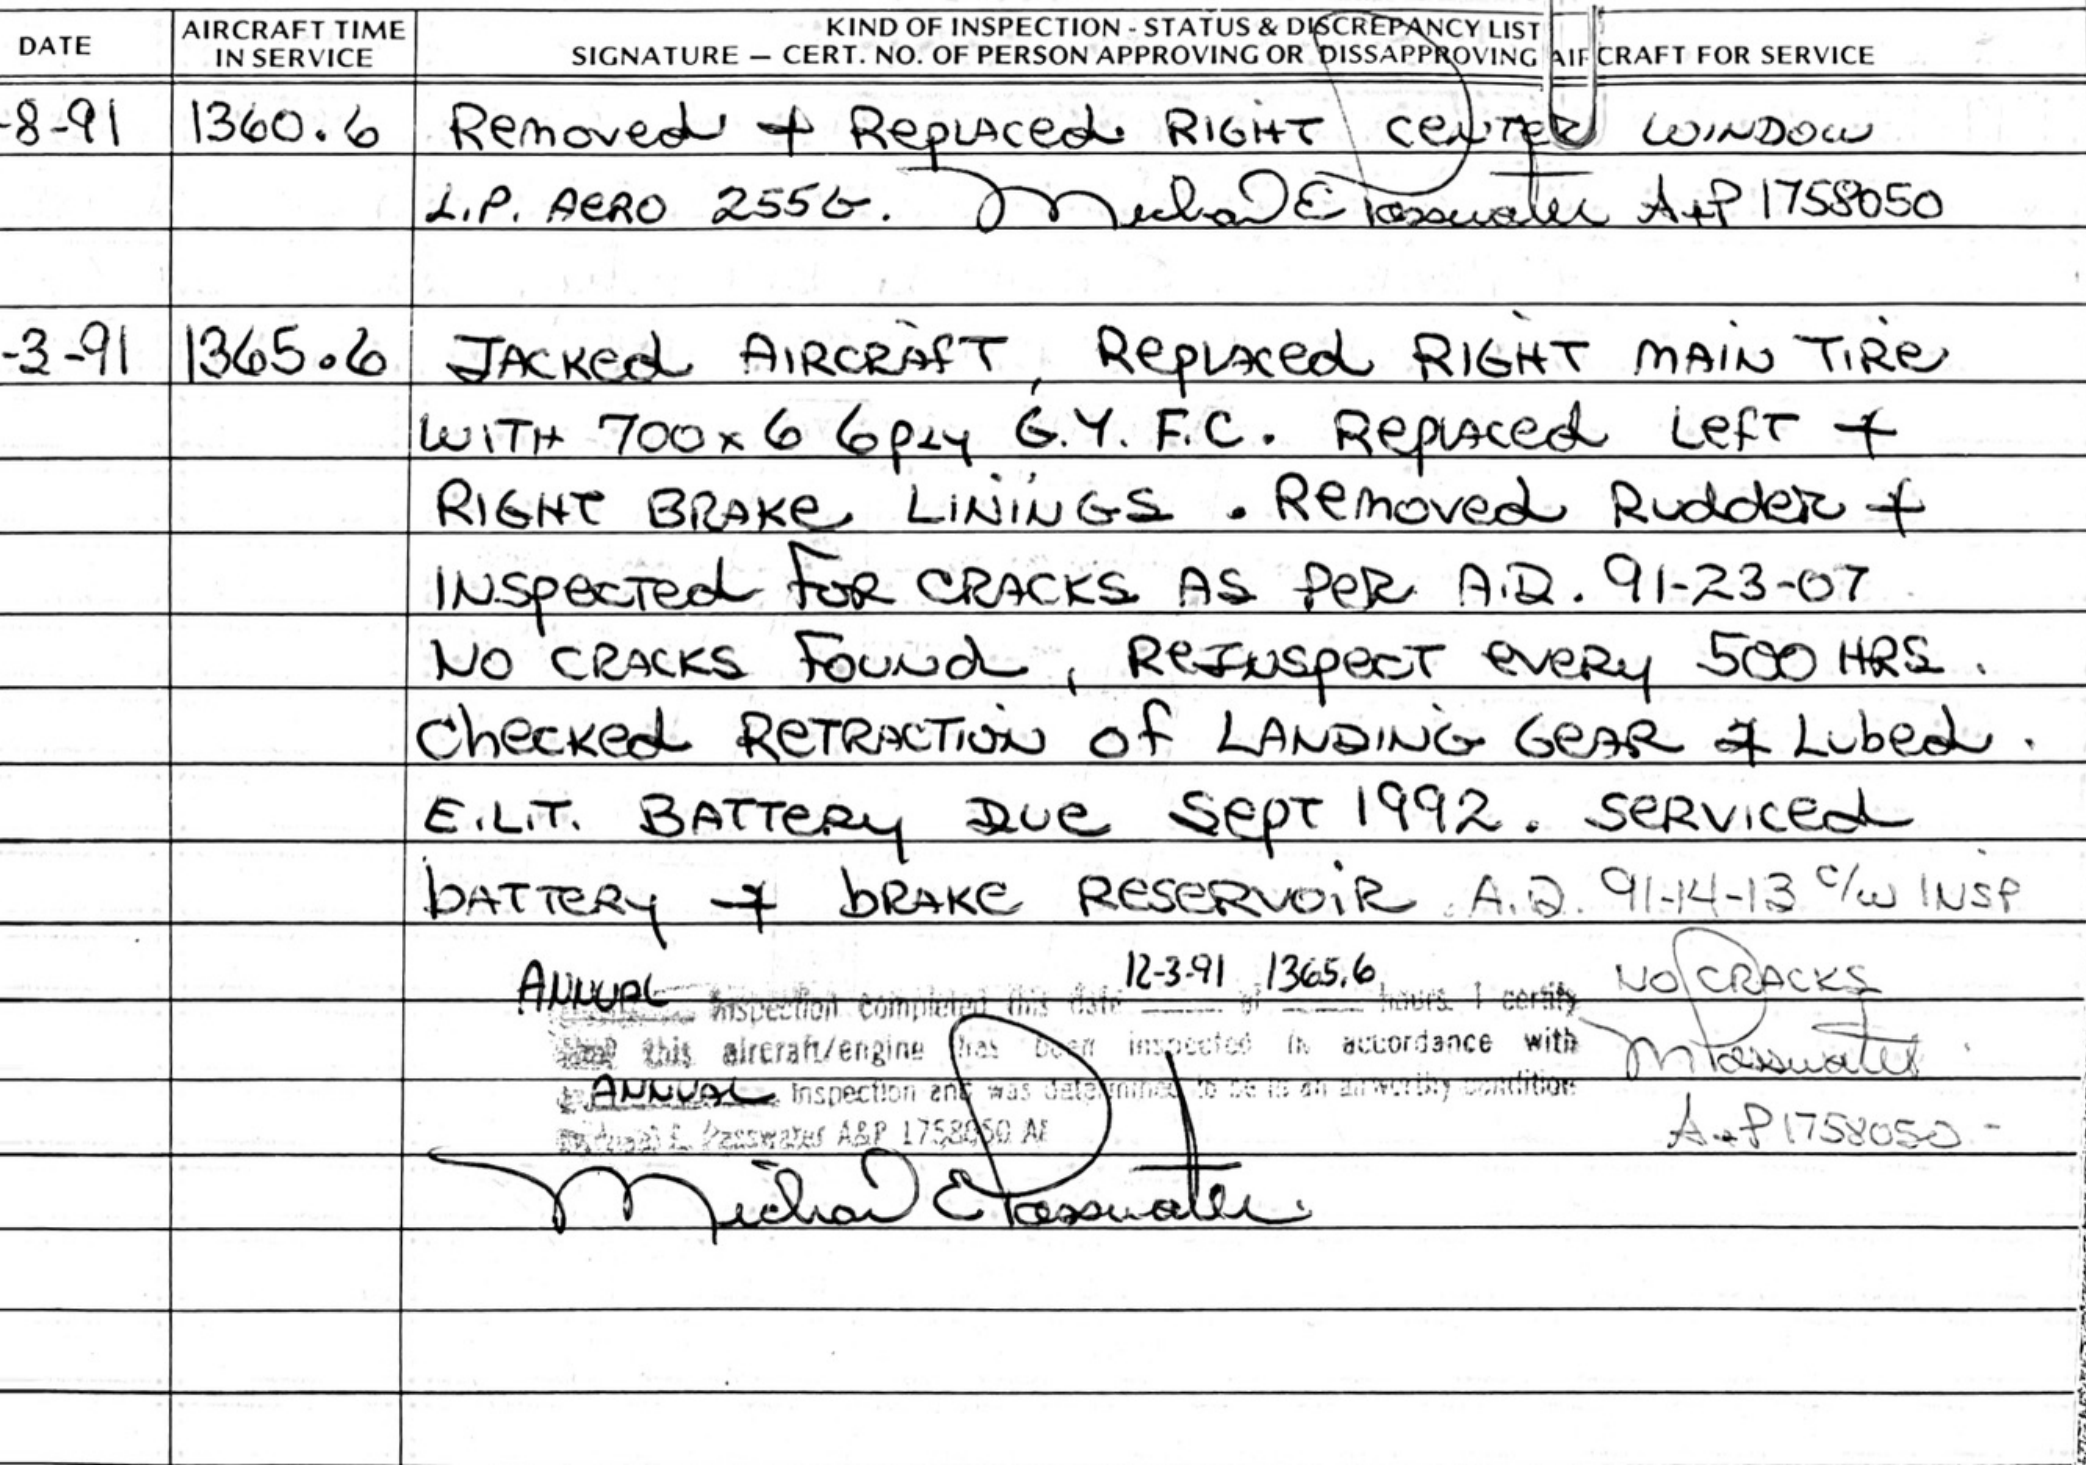 DATE
AIRCRAFT TIME
IN SERVICE
KIND OF INSPECTION - STATUS & DISCREPANCY LIST
SIGNATURE — CERT. NO. OF PERSON APPROVING OR DISSAPPROVING AIRCRAFT FOR SERVICE
-8-91 1360.6 Removed + Replaced RIGHT CENTER WINDOW
L.P. AERO 255G. Michael E Passwater A+P 1758050
-3-91 1365.6 JACKed AIRCRAFT, Replaced RIGHT MAIN TIRE
WITH 700x6 6ply G.Y. F.C. Replaced Left +
RIGHT BRAKe LININGS. Removed Rudder +
INSpected FOR CRACKS AS PER A.D. 91-23-07
NO CRACKS Found, ReInspect every 500 HRS.
Checked RETRACTION of LANDING GEAR & Lubed.
E.L.T. BATTERY Due Sept 1992. Serviced
bATTERY + bRAKE RESERVOIR. A.D. 91-14-13 C/W INSP
NO CRACKS
MPasswater
A+P 1758050
ANNUAL Inspection completed this date 12-3-91 at 1365.6 hours. I certify
that this aircraft/engine has been inspected in accordance with
ANNUAL Inspection and was determined to be in an airworthy condition
Michael E. Passwater A&P 1758050 AI
Michael E Passwater